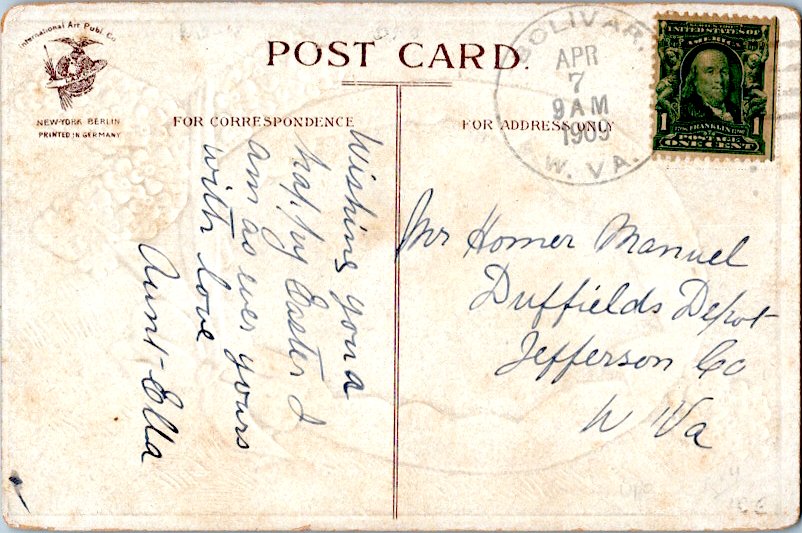 International Art Publ. Co.
NEW-YORK BERLIN
PRINTED IN GERMANY
POST CARD.
FOR CORRESPONDENCE
FOR ADDRESS ONLY
BOLIVAR,
APR
7
9 AM
1909
W. VA.
UNITED STATES OF
AMERICA
1 FRANKLIN 1
POSTAGE
ONE CENT
Wishing you a
happy Easter I
am as ever yours
with love
Aunt-Ella
Mr Homer Manuel
Duffields Depot
Jefferson Co
W Va